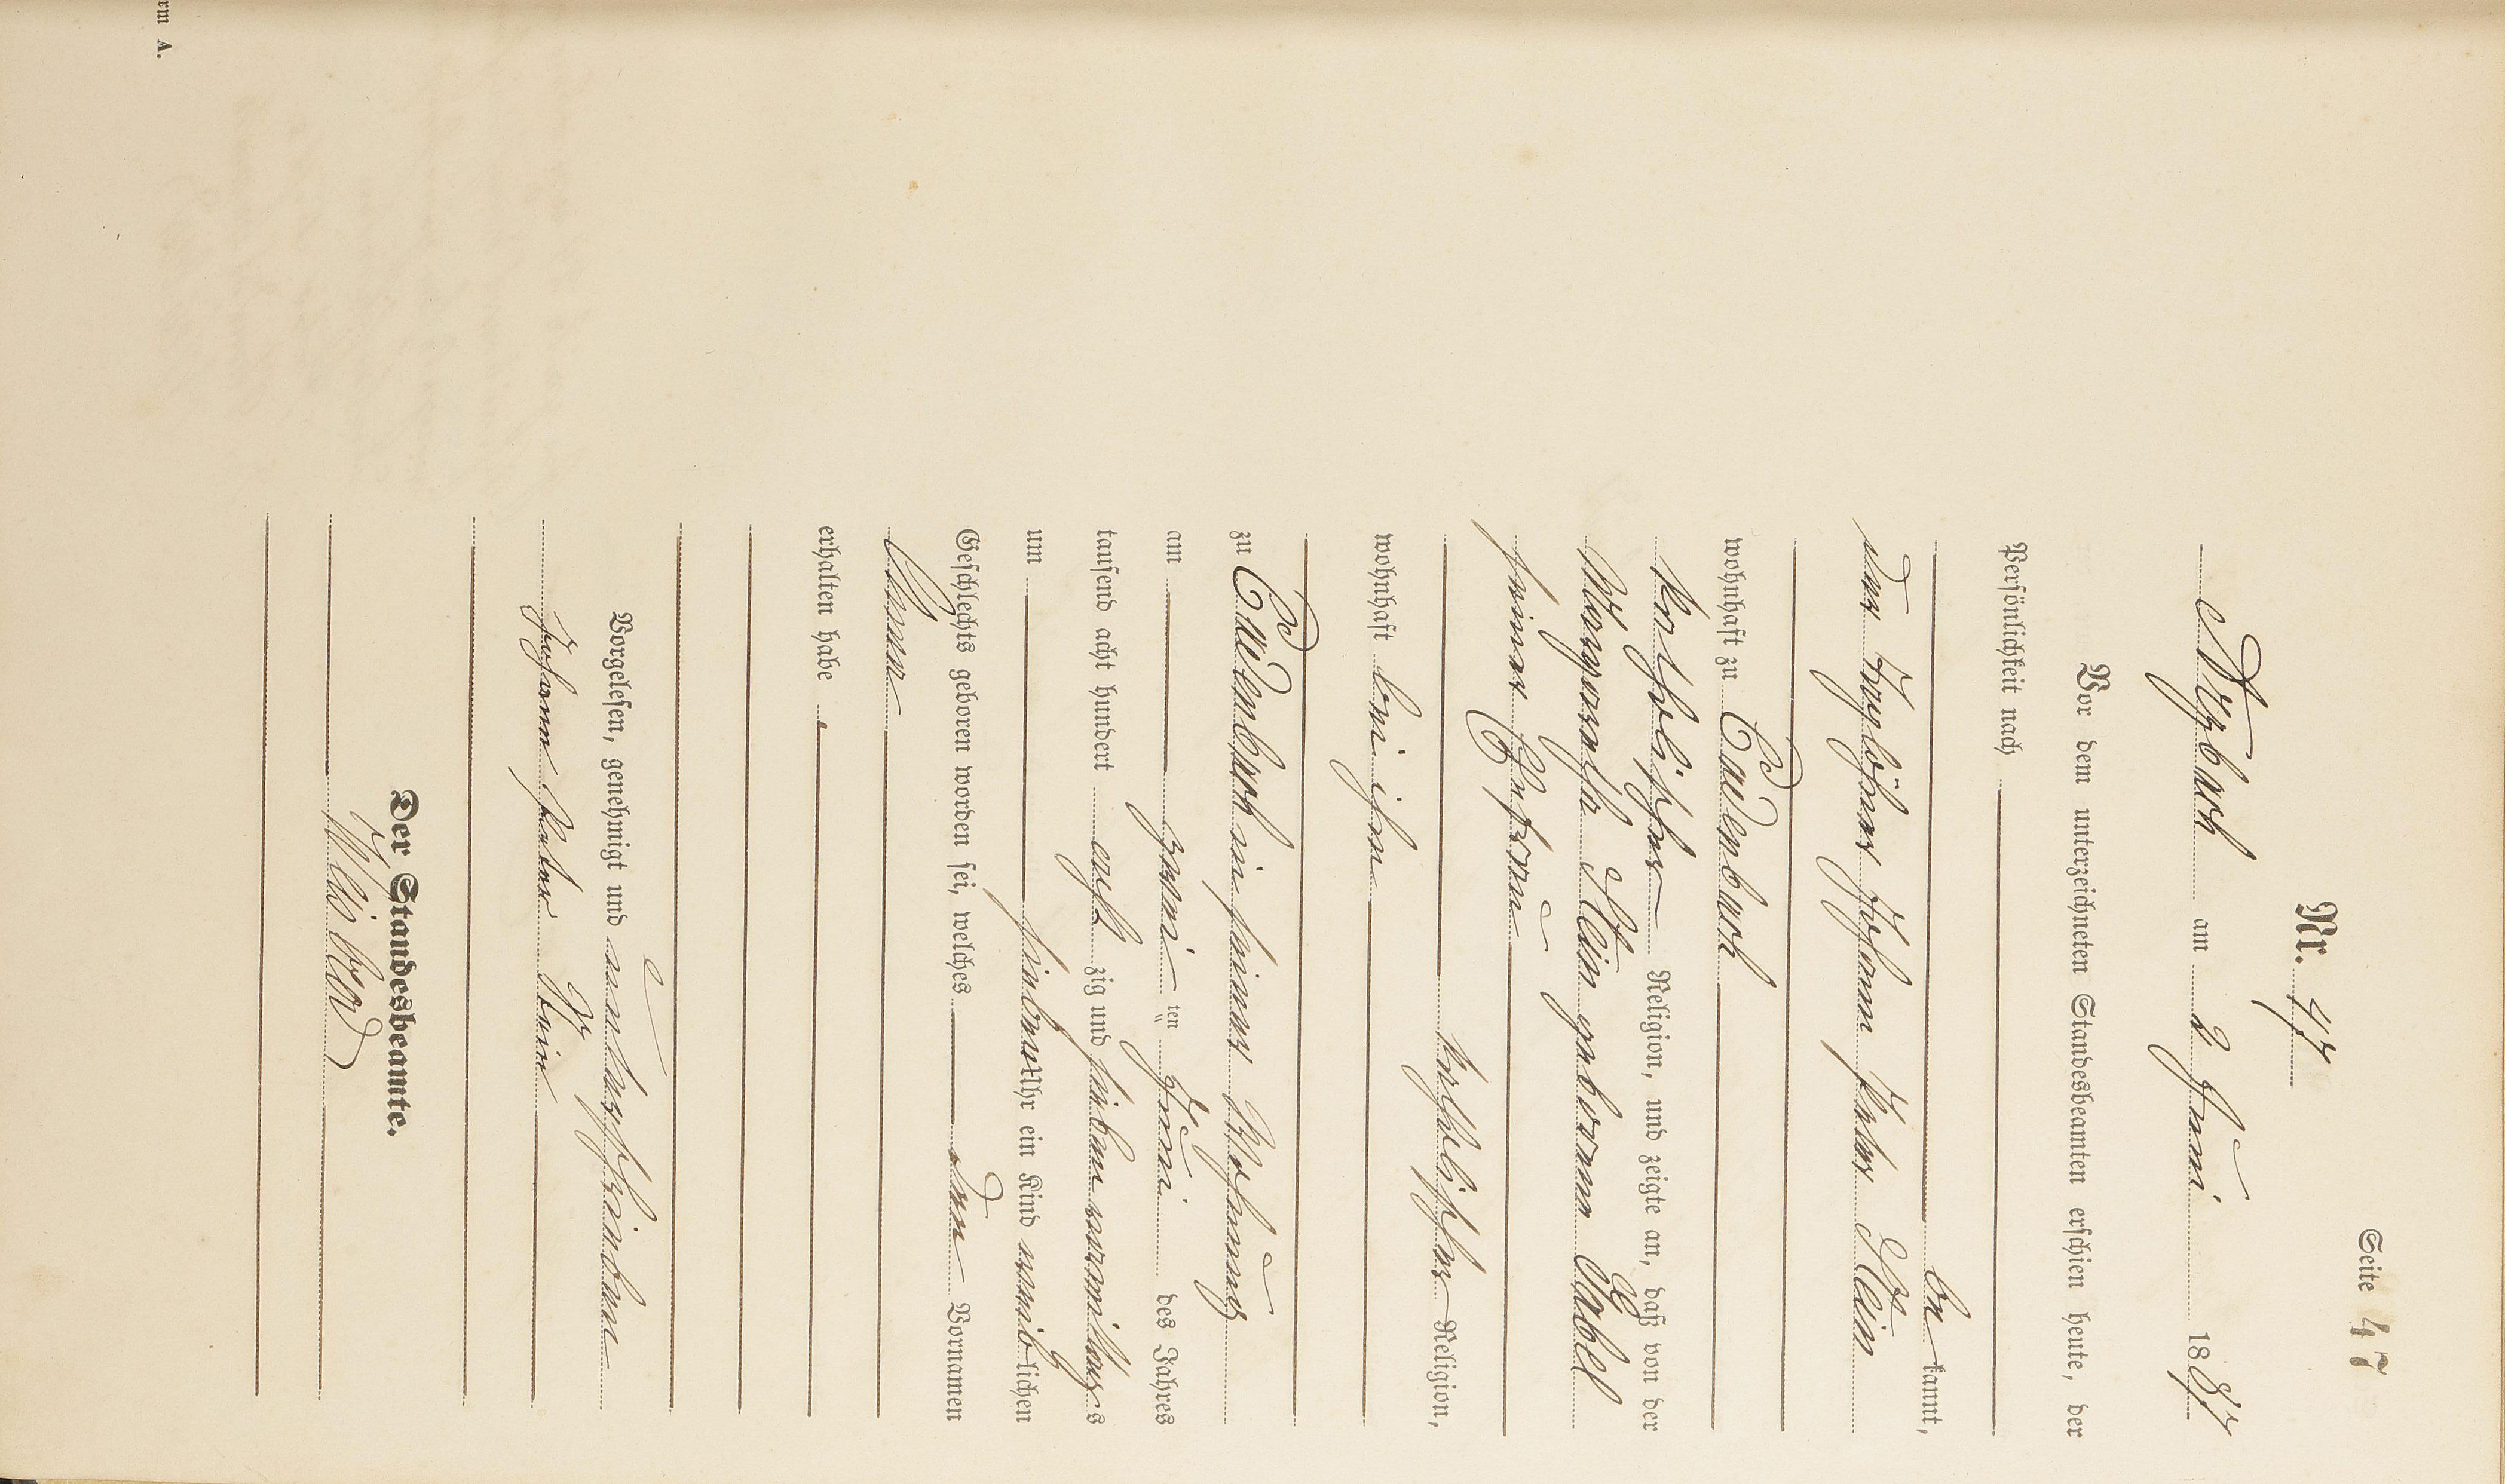 Seite 47
Nr. 47
Nezbach am 2 Juni 1887
Vor dem unterzeichneten Standesbeamten erschien heute, der
Persönlichkeit nach
be kannt,
der Tagelöhner Johann Peter Klein
wohnhaft zu Caudenbach
katholischer Religion, und zeigte an, daß von der
Margaretha Klein geborenen Gabel
seiner Ehefrau
katholischer Religion,
wohnhaft bei ihm
zu Caudenbach in seiner Wohnung
am zweiten Juni des Jahres
tausend acht hundert acht zig und sieben vormittags
um sieben Uhr ein Kind weiblichen
Geschlechts geboren worden sei, welches den Vornamen
Anna
erhalten habe.
Vorgelesen, genehmigt und unterschrieben
Johann Peter Klein
Der Standesbeamte.
em A.